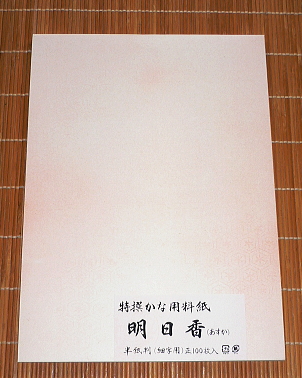 特撰かな用料紙
明日香(あすか)
半紙判(細字用)正100枚入